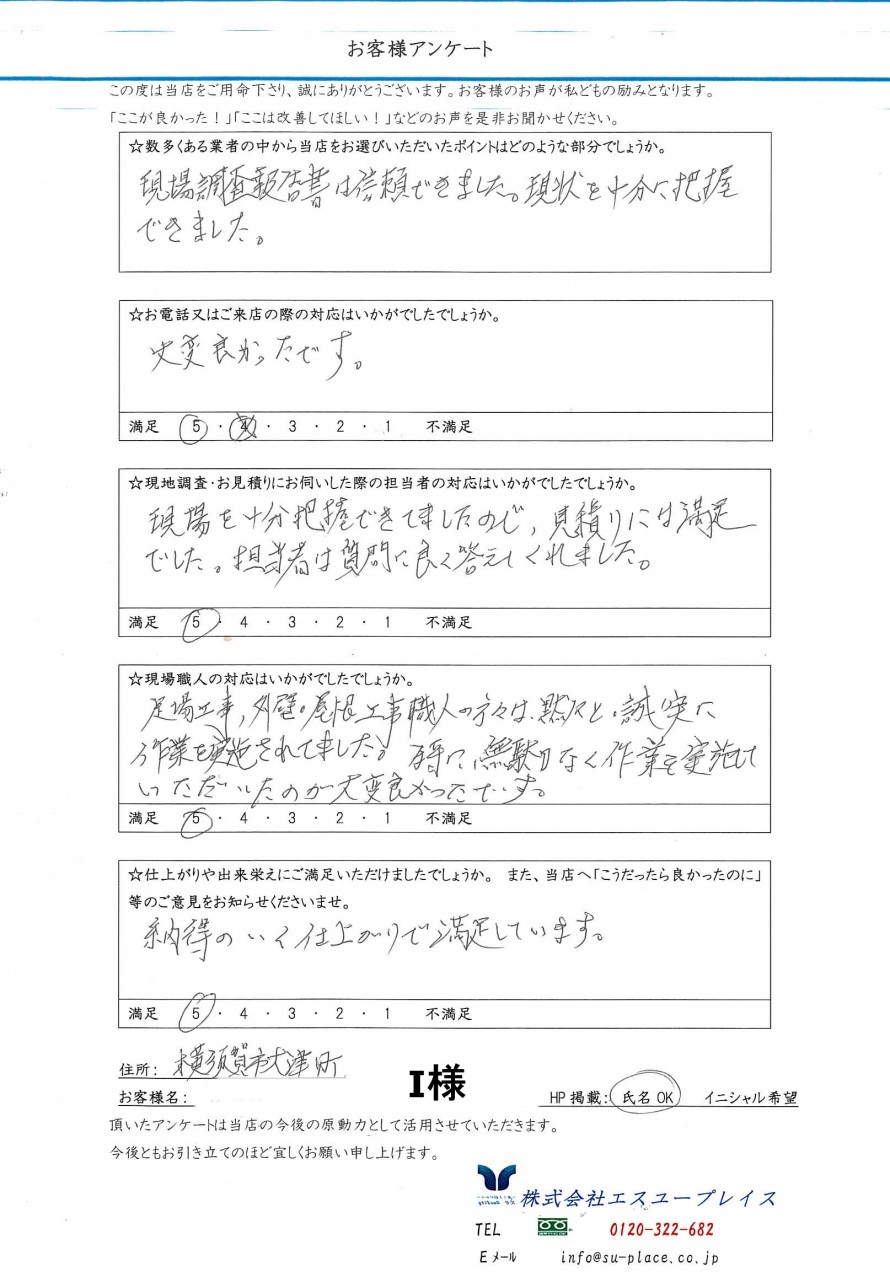 お客様アンケート
この度は当店をご用命下さり、誠にありがとうございます。お客様のお声が私どもの励みとなります。
「ここが良かった！」「ここは改善してほしい！」などのお声を是非お聞かせください。
☆数多くある業者の中から当店をお選びいただいたポイントはどのような部分でしょうか。
現場調査報告書は信頼できました。現状を十分に把握
できました。
☆お電話又はご来店の際の対応はいかがでしたでしょうか。
大変良かったです。
満足 5 ・ 4 ・ 3 ・ 2 ・ 1 不満足
☆現地調査・お見積りにお伺いした際の担当者の対応はいかがでしたでしょうか。
現場を十分把握できてましたので、見積りには満足
でした。担当者は質問に良く答えてくれました。
満足 5 ・ 4 ・ 3 ・ 2 ・ 1 不満足
☆現場職人の対応はいかがでしたでしょうか。
足場工事、外壁・屋根工事職人の方々は、黙々と、誠実に
作業を実施されてました。 無駄なく作業を実施して
いただいたのが大変良かったです。
満足 5 ・ 4 ・ 3 ・ 2 ・ 1 不満足
☆仕上がりや出来栄えにご満足いただけましたでしょうか。 また、当店へ「こうだったら良かったのに」
等のご意見をお知らせくださいませ。
納得のいく仕上がりで満足しています。
満足 5 ・ 4 ・ 3 ・ 2 ・ 1 不満足
住所: 横須賀市大津町
お客様名: I様 HP掲載: 氏名OK イニシャル希望
頂いたアンケートは当店の今後の原動力として活用させていただきます。
今後ともお引き立てのほど宜しくお願い申し上げます。
株式会社エスユープレイス
TEL 0120-322-682
Eメール info@su-place.co.jp